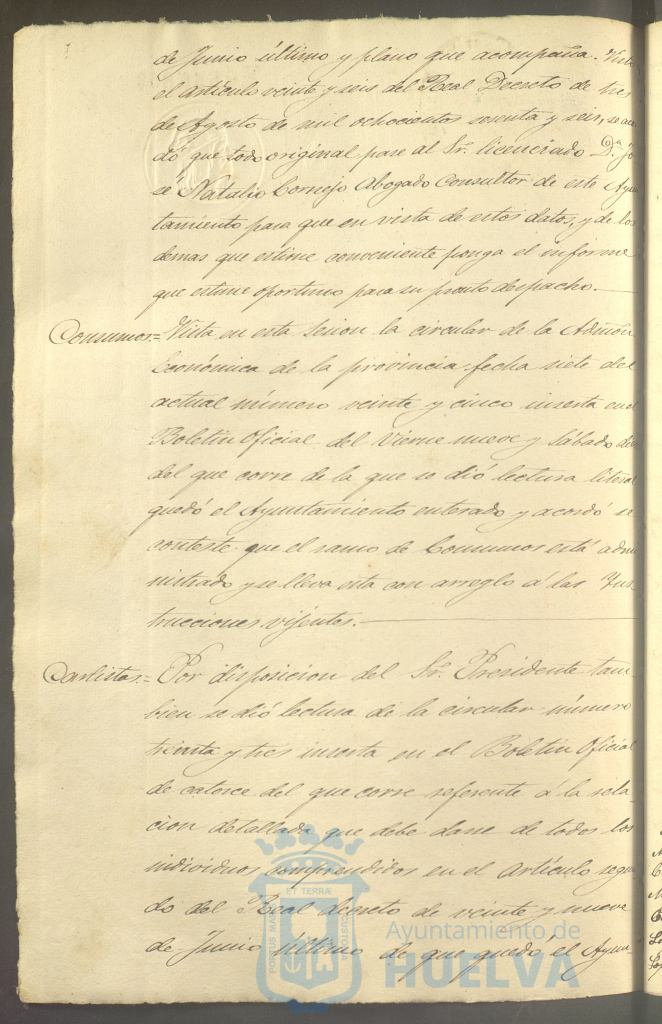 de Junio último y plano que acompaña. Vista
el artículo veinte y seis del Real Decreto de tres
de Agosto de mil ochocientos sesenta y seis, se acor
dó que todo original pase al Sr. licenciado Dn. Jo
sé Natalio Cornejo Abogado Consultor de este Ayun
tamiento para que en vista de estos datos, y de los
demas que estime conveniente ponga el informe
que estime oportuno para su pronto despacho.
Consumos = Vista en esta sesion la circular de la Admon
Económica de la provincia fecha siete del
actual número veinte y cinco inserta en el
Boletin Oficial del Vierne nueve y Sábado diez
del que corre de la que se dió lectura literal
quedó el Ayuntamiento enterado y acordó se
conteste que el ramo de Consumos está admi
nistrado y se lleva esta con arreglo á las Yns
trucciones vijentes.
Carlistas = Por disposicion del Sr. Presidente tam-
bien se dió lectura de la circular número
treinta y tres inserta en el Boletin Oficial
de catorce del que corre referente á la rela-
cion detallada que debe darse de todos los
individuos comprendidos en el Artículo segun
do del Real decreto de veinte y nueve
de Junio último de que quedó el Ayun-
ET TERRÆ
PORTUS MARIS
CUSTODIA
Ayuntamiento de
HUELVA